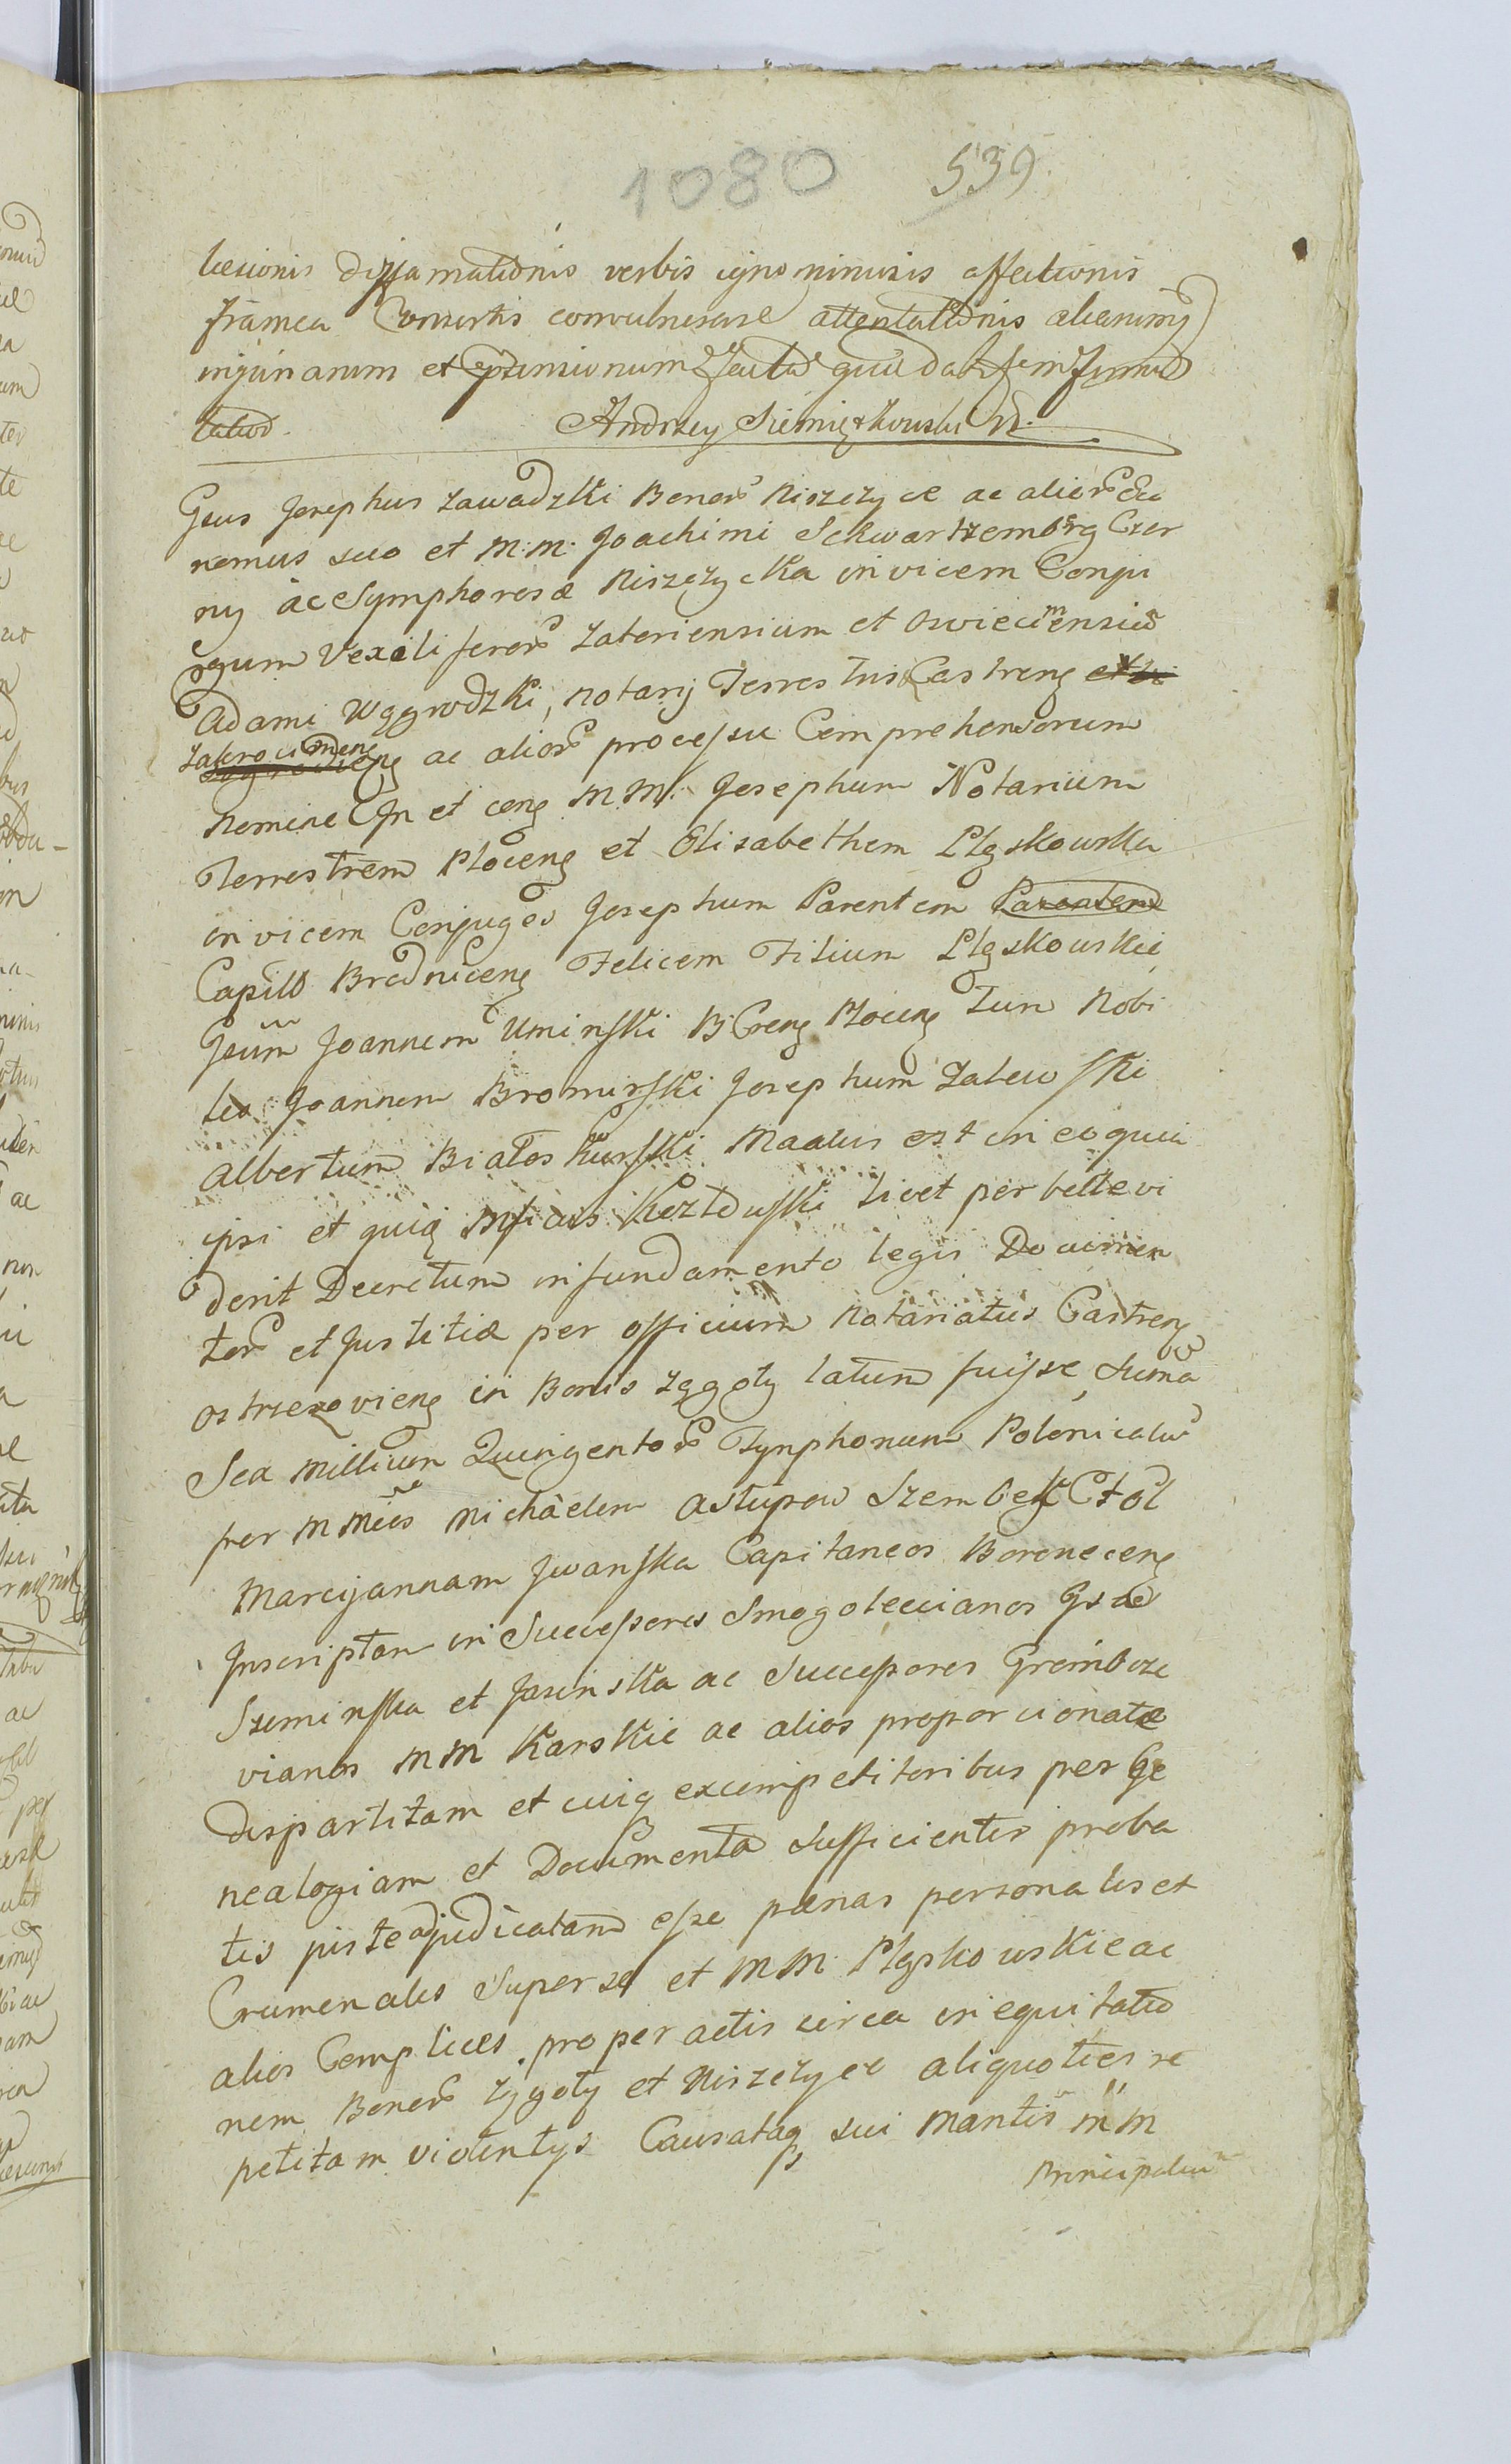 1080 539
laesionis diffamationis verbis ignominiosis affectionis
framea convulnerare attentationis aliarumq
injuriarum et
Andrzey Siemiątkowski
Gsus Josephus Zawadzki Bonor Niszczyce ac alior
nomine suo et M: M: Joachimi Schwartzemberg Czer
ny ac Symphorosae Niszczycka invicem Conju
gum Vexiliferor Zatoriensium et Oswiecimensiu
Adami Wągrodzki, notarij Terrestris Castreng
Zakrocimeng ac alior processu Comprehensorum
nomine In et cong M M. Josephum Notarium
Terrestrem Ploceng et Elisabetham Pląskowska
invicem Conjuges Josephum Parentem Parentem
Capitt Brodniceng Felicem Filium Pląskowskie
Gsum Joannem Uminski B Greng Ploceng Tum Nobi
les Joannem Bromirski Josephum Zalewski
Albertum Białoskurski Maalus est in eo quia
ipsi et quiq Mficus Kozłowski licet per bette vi
derit Decretum in fundamento legis Documen
tor et Justitiae per officium Notariatus Castreng
Ostrzezovieng in Bonis Zggoty latum fuisse, Suma
Sex millium Quingentor Tynphonum Polonicaliu
per M Mcos Michaelem Szembek
Marcijannam Jwanska Capitaneos Boroneceng
Inscriptam in Successores Smogoleccianos Gsae
Szeminska et Jasinska ac Successores Grembosze
vianos M M Karskie ac alios proporcionatae
dispartitam et cuiq excompetitoribus per Ge
nealogiam et Documenta Sufficienter proba
tis juste adjudicatam esse paenas personales et
Crumenales Super se et M M Pląskowskie ac
alios Complices. pro peractis circa inequitatio
nem Bonor Zggoty et Niszczyce aliquoties re
petitam violentys Causataq sui Mantis M M
Principaliu